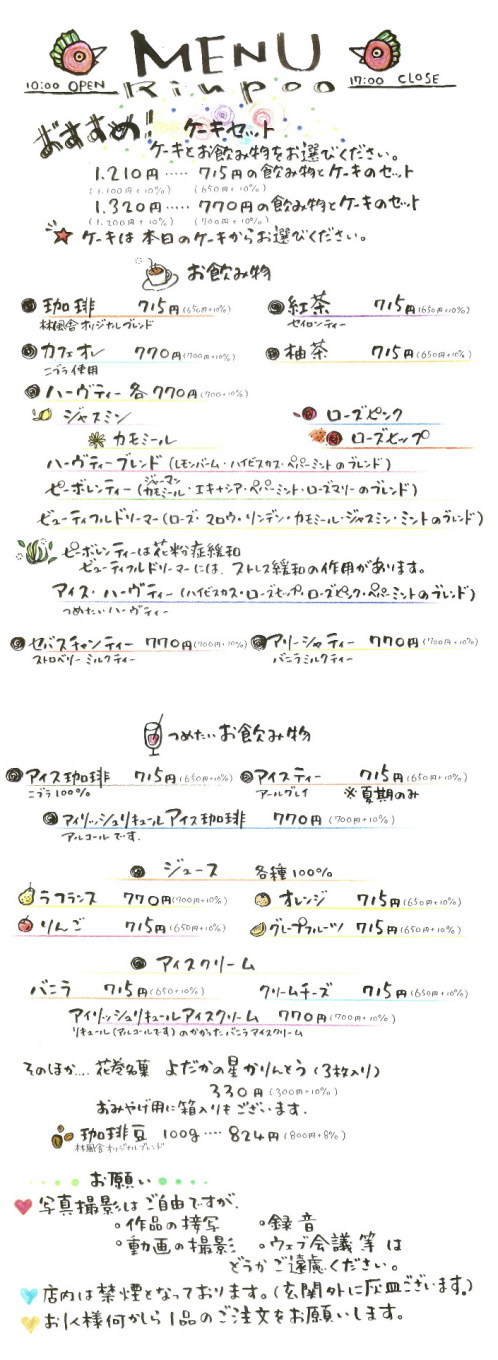 MENU
10:00 OPEN
Rinpoo
17:00 CLOSE
おすすめ! ケーキセット
ケーキとお飲み物をお選びください。
1.210円‥‥‥ 715円の飲み物とケーキのセット
(1.100円+10%) (650円+10%)
1.320円‥‥‥ 770円の飲み物とケーキのセット
(1.200円+10%) (700円+10%)
ケーキは本日のケーキからお選びください。
お飲み物
珈琲 715円(650円+10%) 紅茶 715円(650円+10%)
林風舎オリジナルブレンド セイロンティー
カフェオレ 770円(700円+10%) 柚茶 715円(650円+10%)
ニブラ使用
ハーヴティー各770円(700+10%)
ジャスミン ローズピンク
カモミール ローズヒップ
ハーヴティーブレンド(レモンバーム・ハイビスカス・ペパーミントのブレンド)
ピーポレンティー(ジャーマンカモミール・エキナシア・ペパーミント・ローズマリーのブレンド)
ビューティフルドリーマー(ローズ・マロウ・リンデン・カモミール・ジャスミン・ミントのブレンド)
ピーポレンティーは花粉症緩和
ビューティフルドリーマーには、ストレス緩和の作用があります。
アイス・ハーヴティー(ハイビスカス・ローズヒップ・ローズピンク・ペパーミントのブレンド)
つめたいハーヴティー
セバスチャンティー 770円(700円+10%) アリーシャティー 770円(700円+10%)
ストロベリーミルクティー バニラミルクティー
つめたいお飲み物
アイス珈琲 715円(650円+10%) アイスティー 715円(650円+10%)
ニブラ100% アールグレイ ※夏期のみ
アイリッシュリキュールアイス珈琲 770円(700円+10%)
アルコールです.
ジュース 各種100%
ラフランス 770円(700円+10%) オレンジ 715円(650円+10%)
りんご 715円(650円+10%) グレープフルーツ 715円(650円+10%)
アイスクリーム
バニラ 715円(650+10%) クリームチーズ 715円(650円+10%)
アイリッシュリキュールアイスクリーム 770円(700円+10%)
リキュール(アルコールです)のかかったバニラアイスクリーム
そのほか.... 花巻名菓 よだかの星かりんとう(3枚入り)
330円(300円+10%)
おみやげ用に箱入りもございます.
珈琲豆 100g‥‥ 824円(800円+8%)
林風舎オリジナルブレンド
お願い
写真撮影はご自由ですが、
○作品の接写 ○録音
○動画の撮影 ○ウェブ会議等は
どうかご遠慮ください。
店内は禁煙となっております。(玄関外に灰皿ございます。)
お1人様何かしら1品のご注文をお願いします。